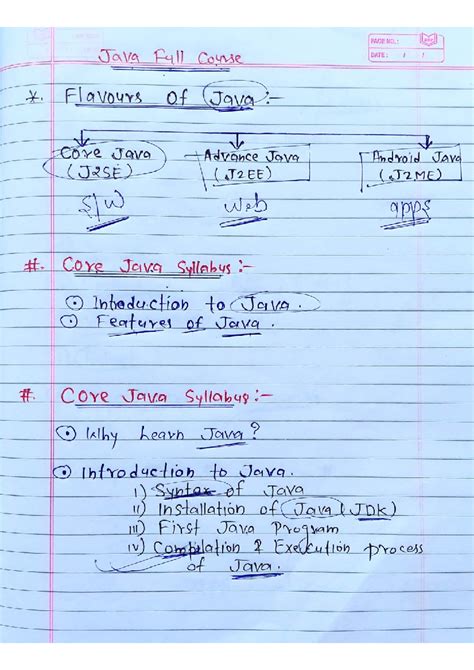 PAGE NO.:
DATE: / /
Java Full Course
*. Flavours Of Java :-
Core Java Advance Java Android Java
(J2SE) (J2EE) (J2ME)
S/W Web apps
#. Core Java Syllabus :-
⊙ Introduction to Java.
⊙ Features of Java.
#. Core Java Syllabus :-
⊙ Why Learn Java?
⊙ Introduction to Java.
i) Syntax of Java
ii) Installation of Java (JDK)
iii) First Java Program
iv) Compilation & Execution process
of Java.